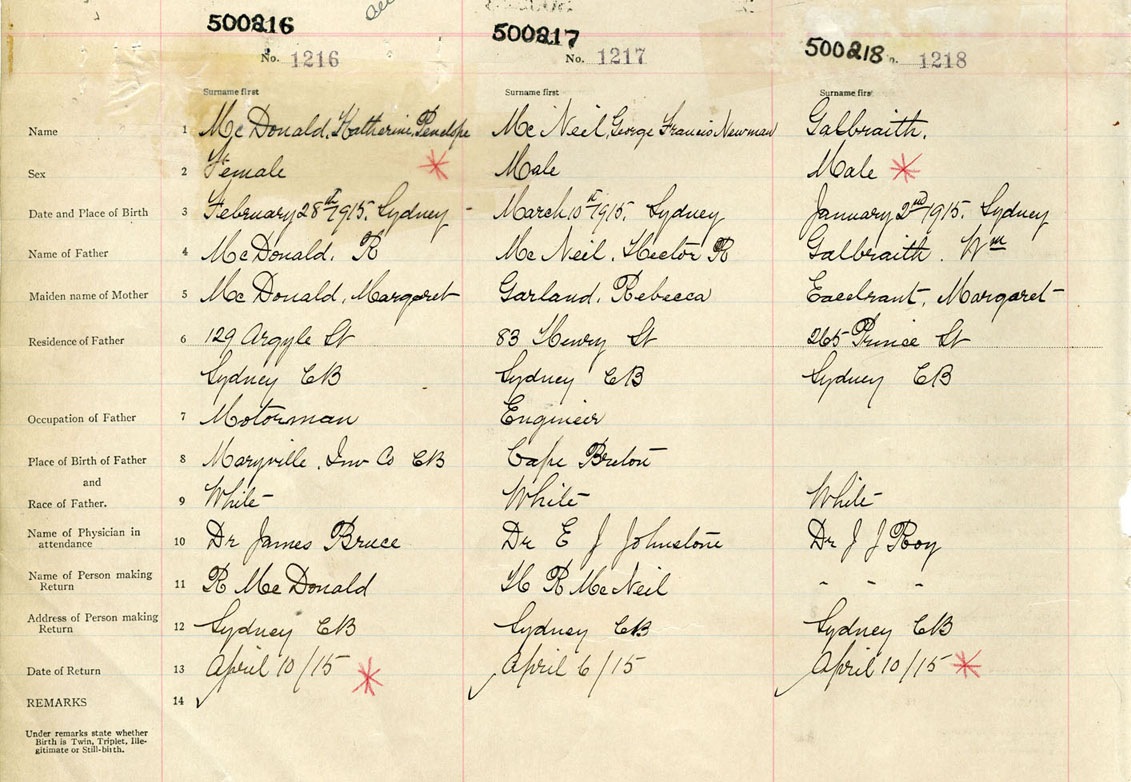 500216 500217 500218
No. 1216 No. 1217 1218
Surname first Surname first Surname first
Name 1 McDonald, Katherine, Penelope McNeil, George Francis Newman Galbraith.
Sex 2 Female Male Male
Date and Place of Birth 3 February 28th 1915. Sydney March 10th 1915. Sydney January 2nd 1915. Sydney
Name of Father 4 McDonald. R McNeil. Hector R Galbraith. Wm
Maiden name of Mother 5 McDonald, Margaret Garland. Rebecca Margaret
Residence of Father 6 129 Argyle St 83 Henry St 265 Prince St
Sydney CB Sydney CB Sydney CB
Occupation of Father 7 Motorman Engineer
Place of Birth of Father 8 Maryville, Inv Co CB Cape Breton
and
Race of Father. 9 White White White
Name of Physician in
attendance 10 Dr James Bruce Dr E J Johnstone Dr J J Roy
Name of Person making
Return 11 R McDonald H R McNeil - - -
Address of Person making
Return 12 Sydney CB Sydney CB Sydney CB
Date of Return 13 April 10/15 April 6/15 April 10/15
REMARKS 14
Under remarks state whether
Birth is Twin, Triplet, Ille-
gitimate or Still-birth.